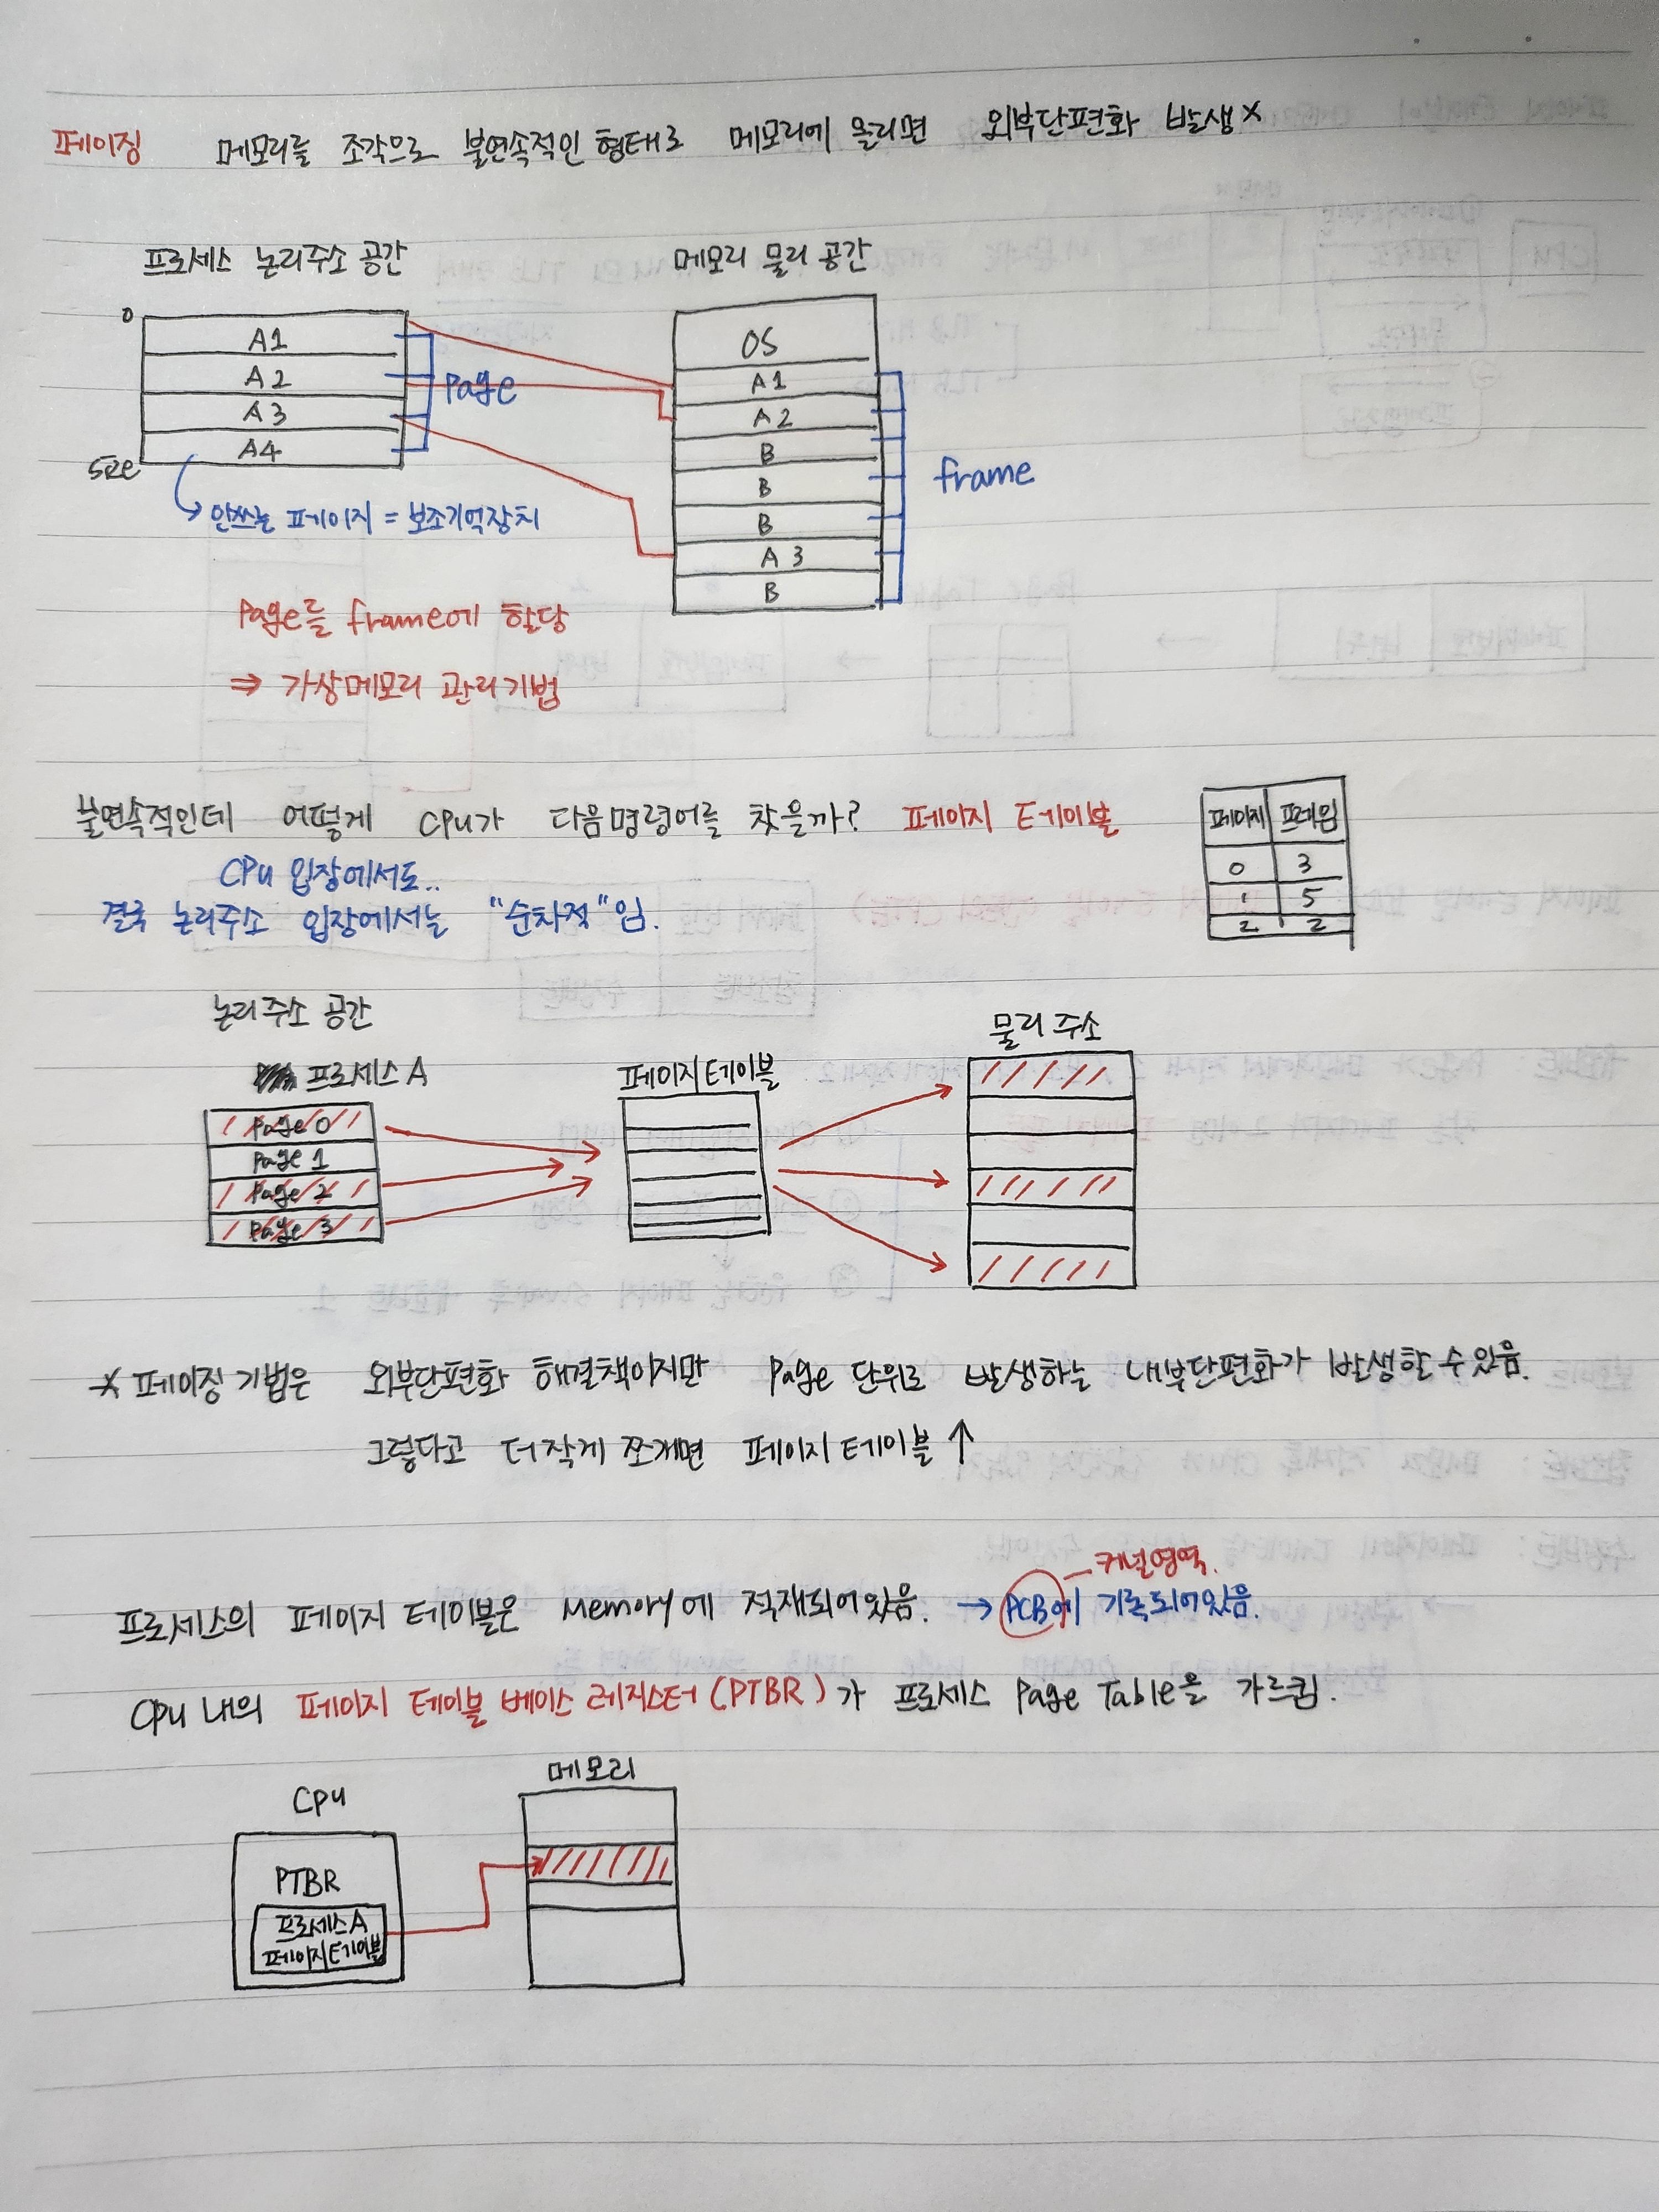 페이징 메모리를 조각으로 불연속적인 형태로 메모리에 올리면 외부단편화 발생 X
프로세스 논리주소 공간
0
A1
A2
A3
A4
size
Page
안쓰는 페이지 = 보조기억장치
메모리 물리 공간
OS
A1
A2
B
B
B
A3
B
frame
Page를 frame에 할당
⇒ 가상메모리 관리기법
불연속적인데 어떻게 CPU가 다음명령어를 찾을까? 페이지 테이블
CPU 입장에서도..
결국 논리주소 입장에서는 "순차적"임.
페이지 프레임
0 3
1 5
2 2
논리주소 공간
프로세스 A
Page 0
Page 1
Page 2
Page 3
페이지테이블
물리 주소
* 페이징 기법은 외부단편화 해결책이지만 Page 단위로 발생하는 내부단편화가 발생할 수 있음.
그렇다고 더 작게 쪼개면 페이지 테이블 ↑
커널영역.
프로세스의 페이지 테이블은 Memory에 적재되어있음. → PCB에 기록되어있음.
CPU 내의 페이지 테이블 베이스 레지스터 (PTBR) 가 프로세스 Page Table을 가르킴.
CPU
PTBR
프로세스A
페이지테이블
메모리